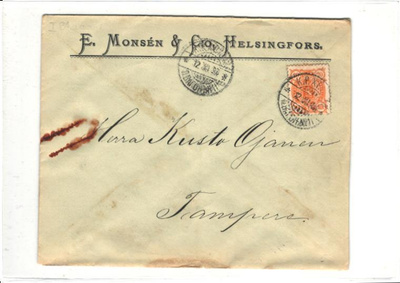 E. Monsén & Co., Helsingfors.
Herra Kusto Ojanen
Tampere.